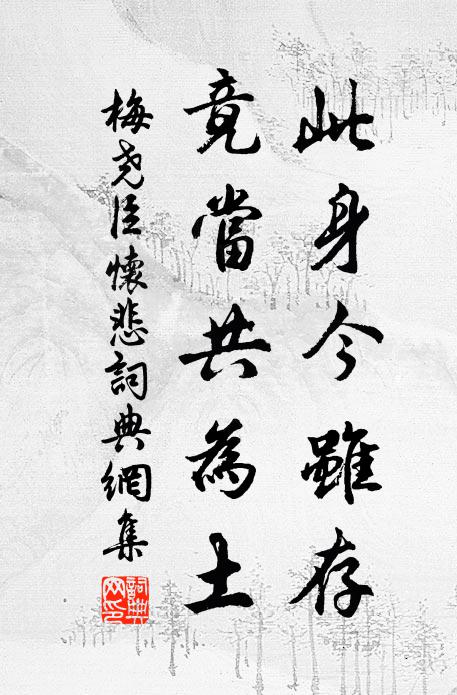 此身今雖存
竟當共為土
梅尧臣懷悲詞典網集
詞典网印